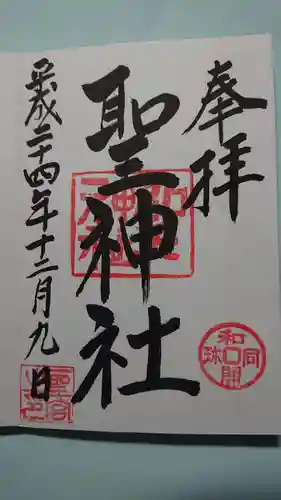 奉拝
聖神社
平成二十四年十二月九日
和同開珎